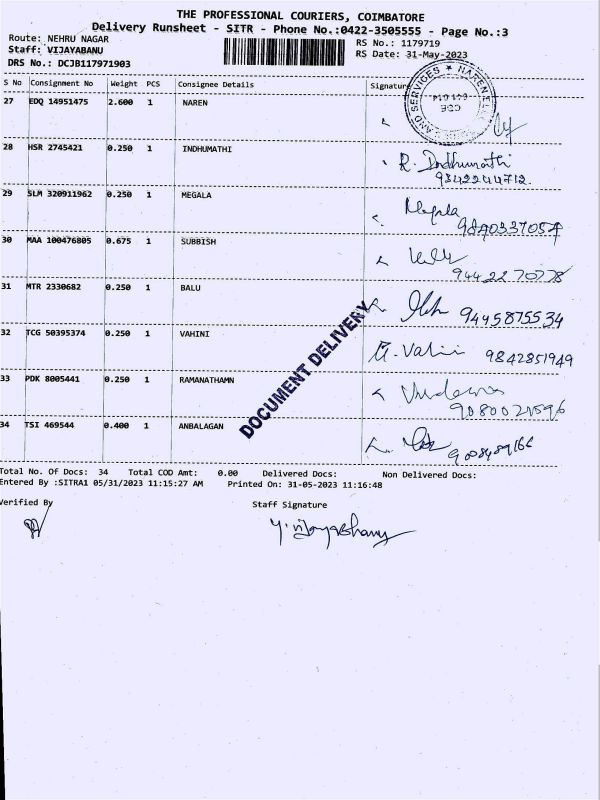 THE PROFESSIONAL COURIERS, COIMBATORE
Delivery Runsheet - SITR - Phone No.:0422-3505555 - Page No.:3
Route: NEHRU NAGAR
RS No.: 1179719
Staff: VIJAYABANU
RS Date: 31-May-2023
DRS No.: DCJB117971903
S No Consignment No Weight PCS Consignee Details Signature
27 EDQ 14951475 2.600 1 NAREN
28 HSR 2745421 0.250 1 INDHUMATHI
R. Indhumathi
9342244712.
29 SLM 320911962 0.250 1 MEGALA
Megala
9840337054
30 MAA 100476805 0.675 1 SUBBISH
94422 70778
31 MTR 2330682 0.250 1 BALU
9445875534
32 TCG 50395374 0.250 1 VAHINI
Vahini 9842851949
33 PDK 8005441 0.250 1 RAMANATHAMN
9080021596
34 TSI 469544 0.400 1 ANBALAGAN
9008489166
DOCUMENT DELIVERY
Total No. Of Docs: 34 Total COD Amt: 0.00 Delivered Docs: Non Delivered Docs:
Entered By :SITRA1 05/31/2023 11:15:27 AM Printed On: 31-05-2023 11:16:48
Verified By
Staff Signature